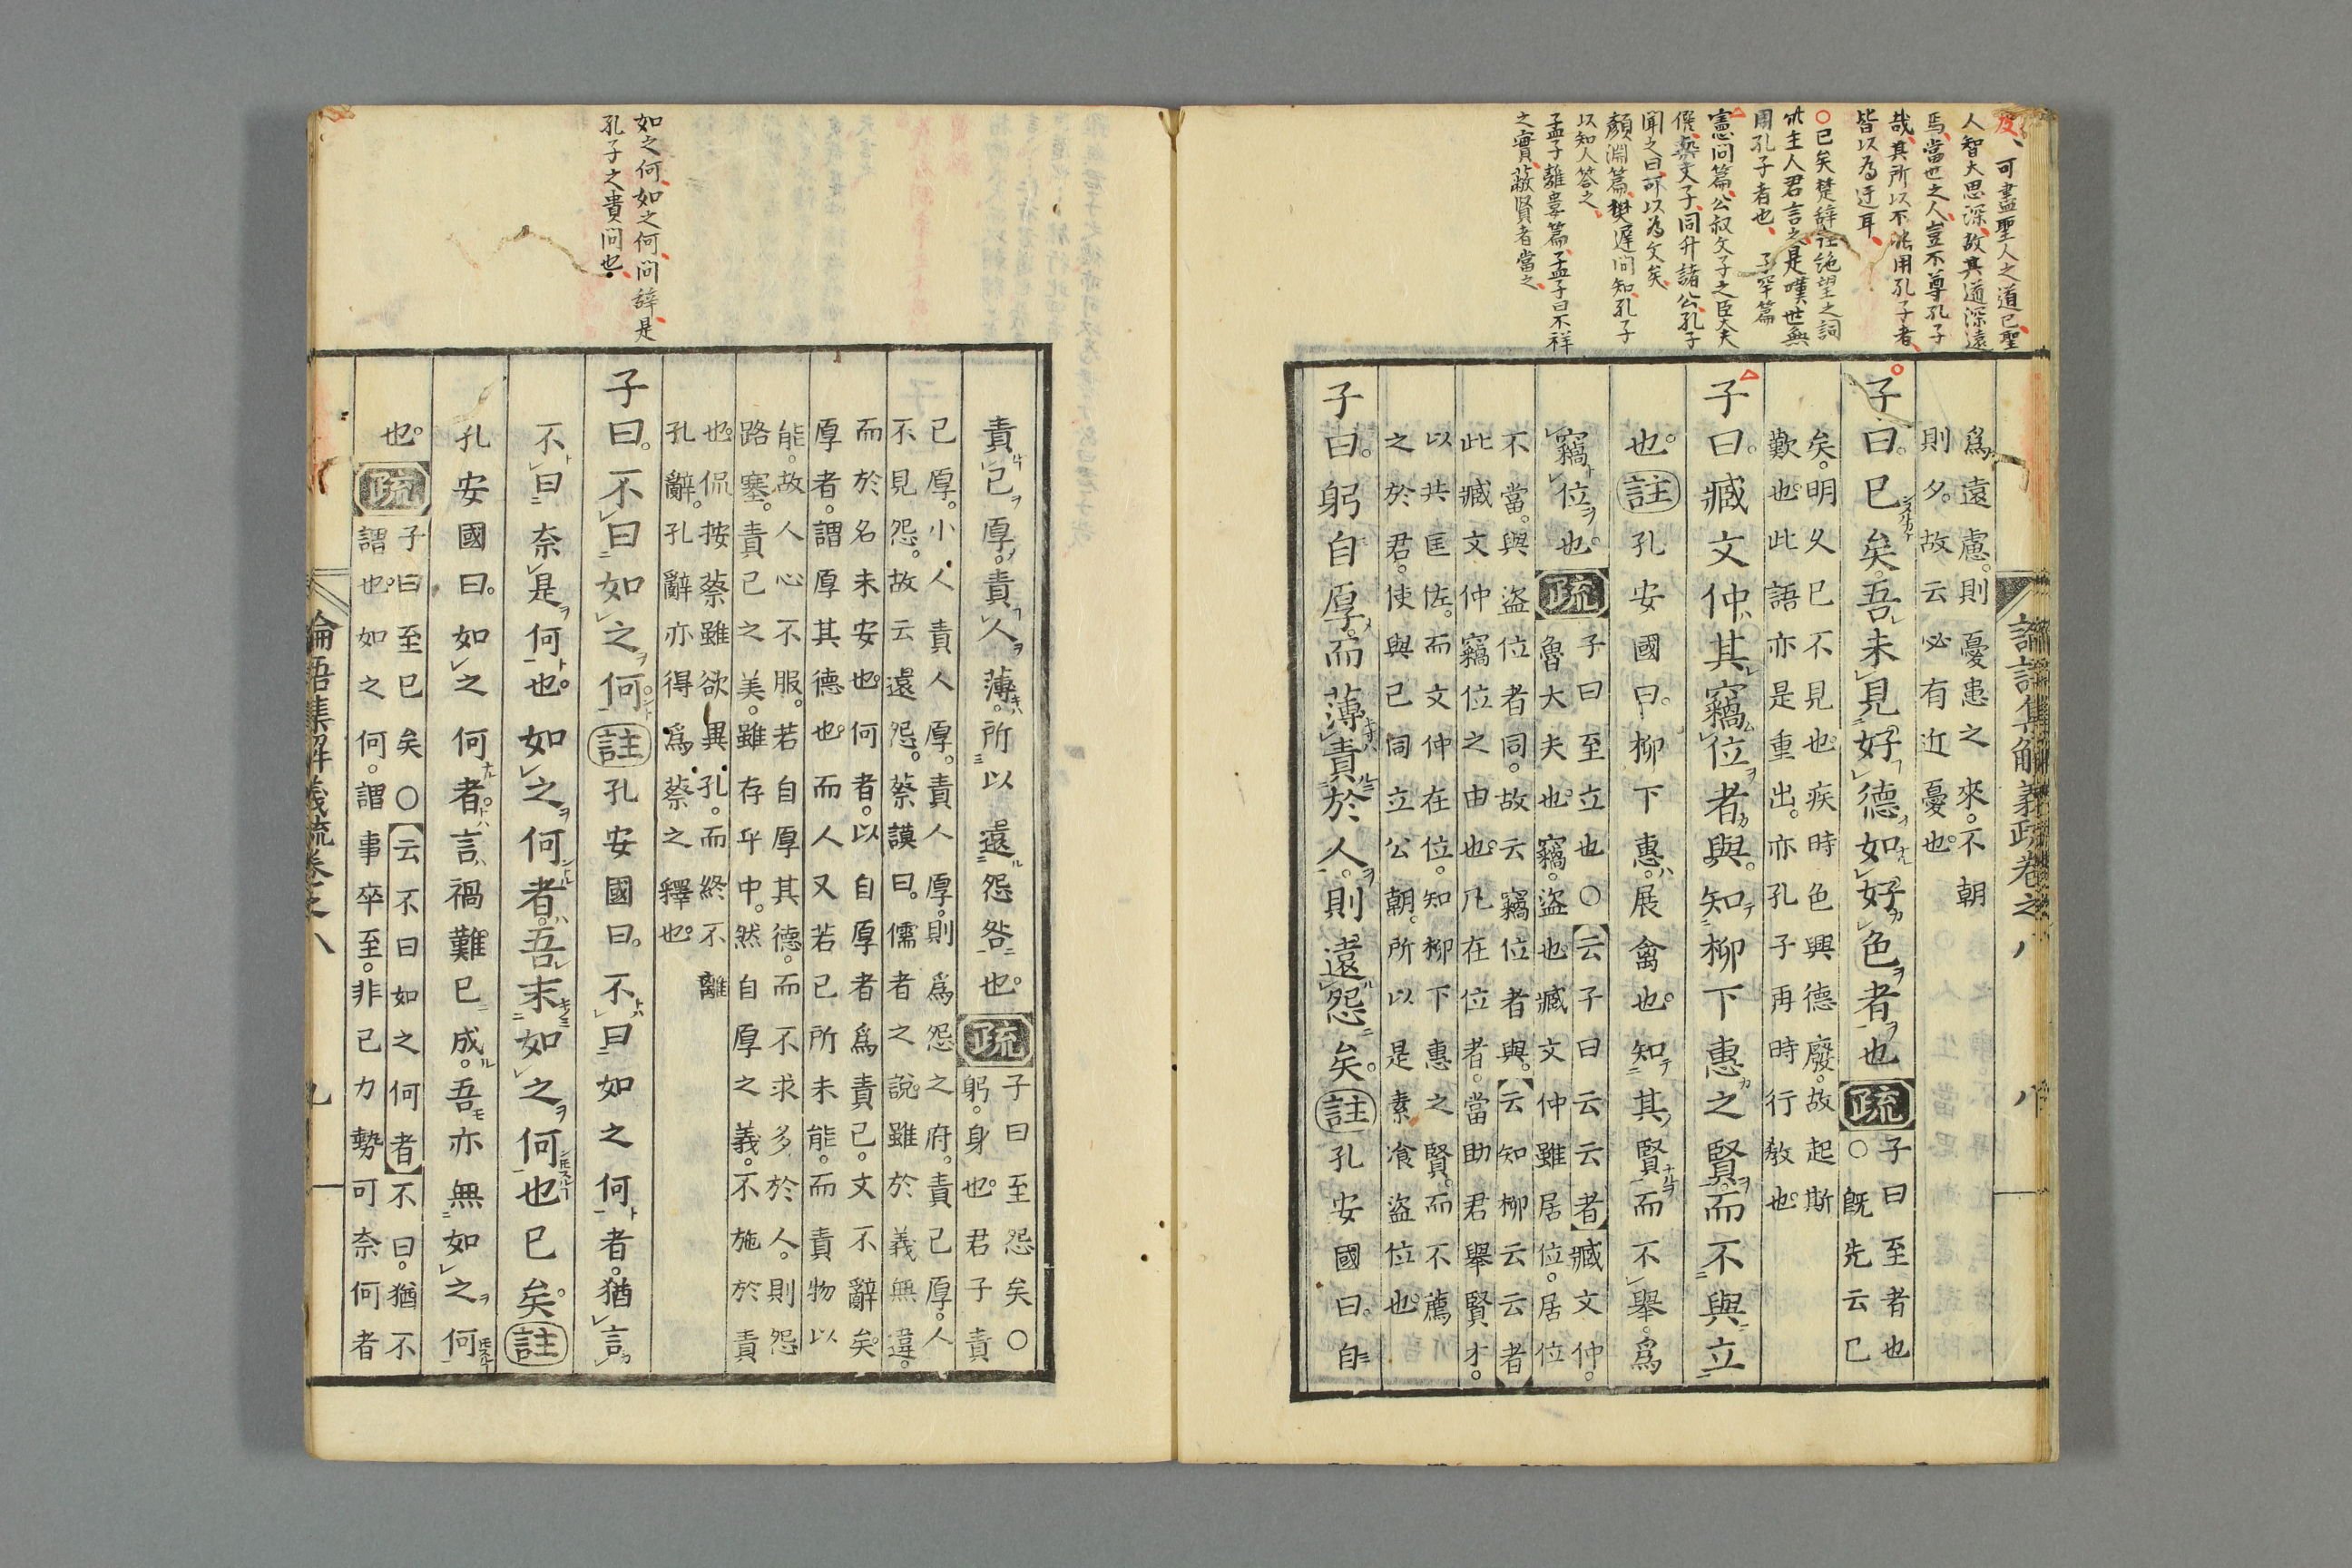 可盡聖人之道已聖
人智大思深故其道深遠
焉當也之人豈不尊孔子
哉其所以不能用孔子者
皆以為迂耳
○已矣楚辭註絶望之詞
此主人君言之是嘆世無
用孔子者也 子罕篇
憲問篇公叔文子之臣大夫
僎與文子同升諸公孔子
聞之曰可以為文矣
顏淵篇樊遲問知孔子
以知人答之
孟子離婁篇孟子曰不祥
之實蔽賢者當之
論語集解義疏卷之八 八
爲遠慮。則憂患之來。不朝
則夕。故云必有近憂也。
子曰。已矣。吾未見好德如好色者也 疏
子曰至者也
○既先云已
矣。明久已不見也。疾時色興德廢。故起斯
歎也。此語亦是重出。亦孔子再時行敎也。
子曰。臧文仲其竊位者與。知柳下惠之賢。而不與立
也。 註 孔安國曰。柳下惠。展禽也。知其賢而不舉。爲
竊位也。 疏
子曰至立也○云子曰云云者 臧文仲。
魯大夫也。竊。盜也。臧文仲雖居位。居位
不當。與盜位者同。故云竊位者與。云知柳云云者
此臧文仲竊位之由也。凡在位者。當助君舉賢才。
以共匡佐。而文仲在位。知柳下惠之賢。而不薦
之於君。使與己同立公朝。所以是素飡盜位也。
子曰。躬自厚。而薄責於人。則遠怨矣。 註 孔安國曰。自
如之何如之何問辭是
孔子之貴問也
責己厚。責人薄。所以遠怨咎也。 疏
子曰至怨矣○
躬。身也。君子責
己厚。小人責人厚。責人厚。則爲怨之府。責己厚。人
不見怨。故云遠怨。蔡謨曰。儒者之說。雖於義無違。
而於名未安也。何者。以自厚者爲責己。文不辭矣。
厚者。謂厚其德也。而人又若己所未能。而責物以
能。故人心不服。若自厚其德。而不求多於人。則怨
路塞。責己之美。雖存乎中。然自厚之義。不施於責
也。侃按蔡雖欲異孔。而終不離
孔辭。孔辭亦得爲蔡之釋也。
子曰。不曰如之何。 註 孔安國曰。不曰如之何者。猶言
不曰奈是何也。如之何者。吾末如之何也已矣。 註
孔安國曰。如之何者。言禍難已成。吾亦無如之何
也。 疏
子曰至已矣○云不曰如之何者 不曰。猶不
謂也。如之何。謂事卒至。非己力勢可奈何者
論語集解義疏卷之八 九